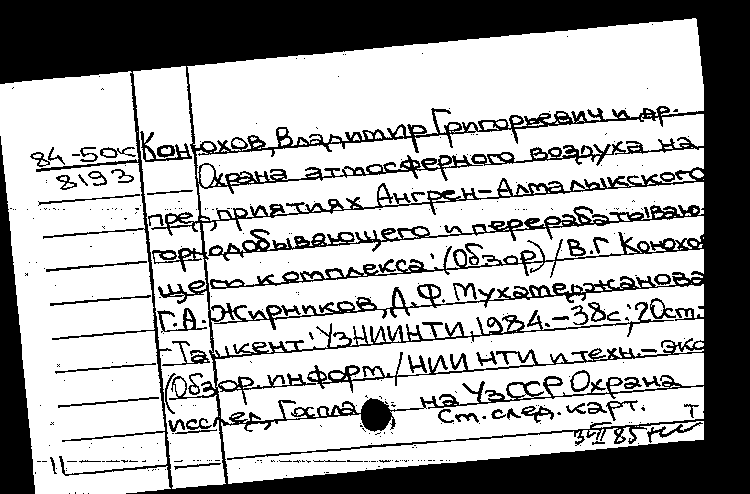 84-50с
8193
Конюхов, Владимир Григорьевич и др.
Охрана атмосферного воздуха на
предприятиях Ангрен-Алмалыкского
горнодобывающего и перерабатываю-
щего комплекса: (Обзор) / В.Г. Конюхов
Г.А. Жирников, Д.Ф. Мухамеджанова
-Ташкент: УзНИИНТИ, 1984.-38с.; 20см.-
(Обзор. информ. / НИИ НТИ и техн.-эко
исслед. Госпла на УзССР. Охрана
Ст. след. карт. Т.
85